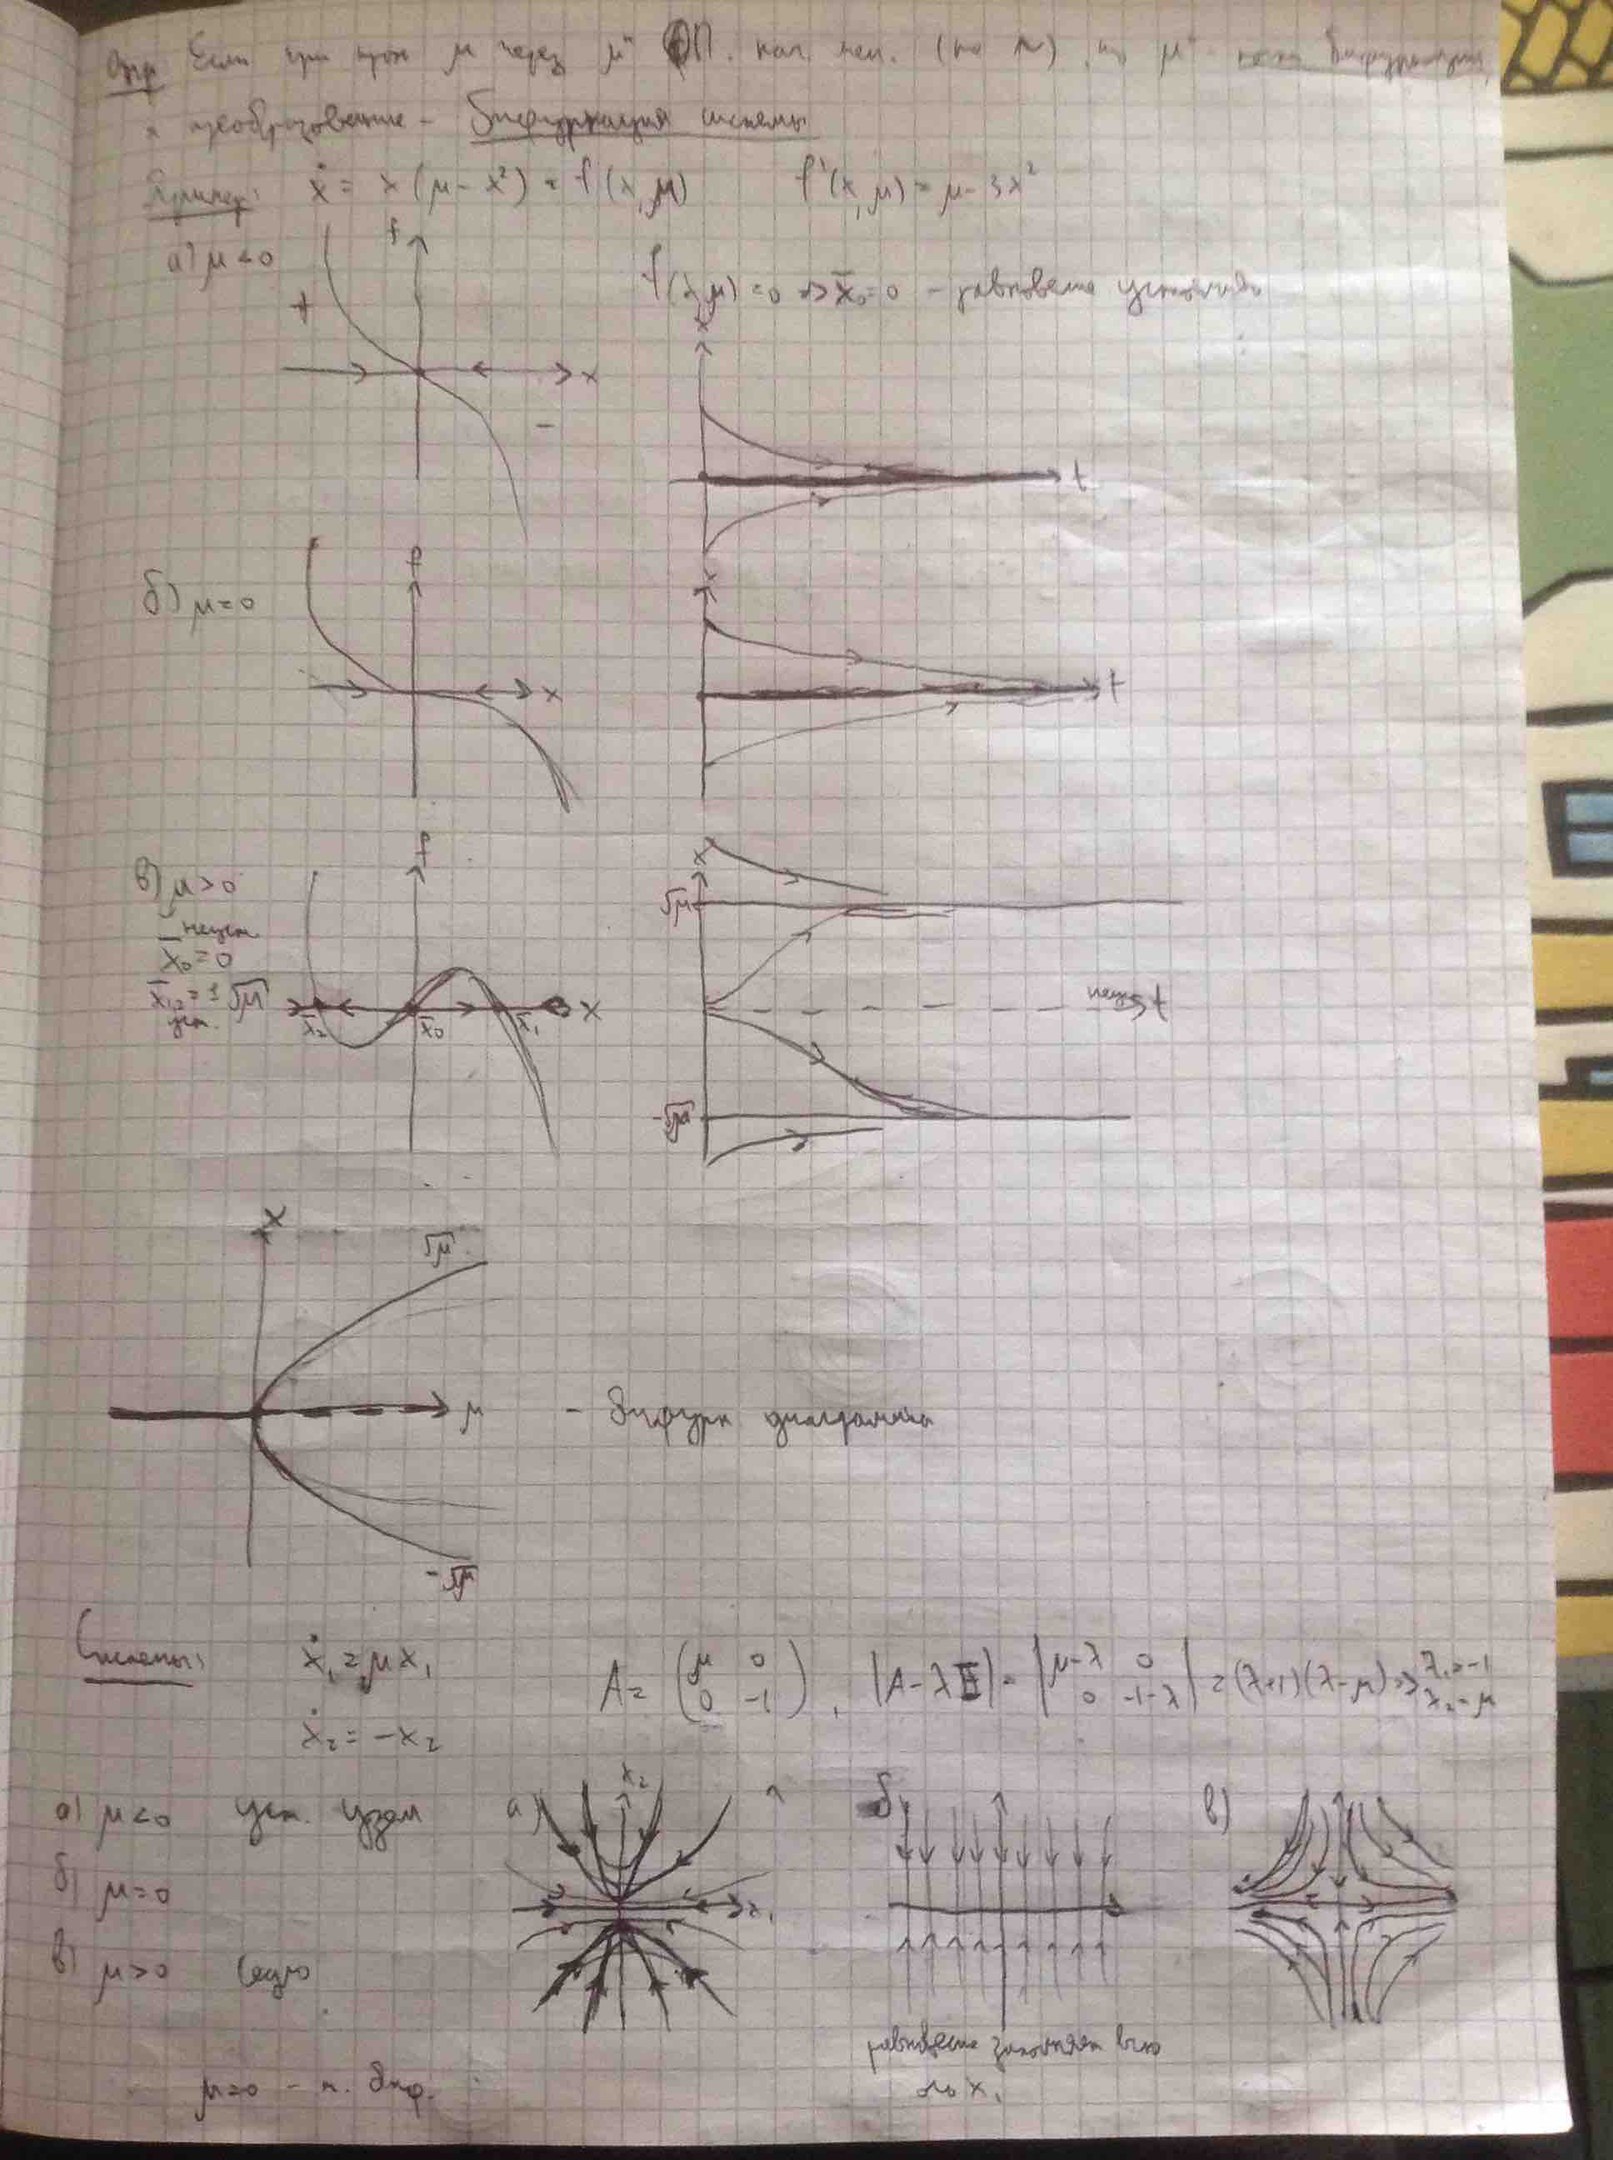 Опр Если при прох μ через μ* ФП. кач. мен. (по ~), то μ* - бифуркации,
а преобразование - бифуркация системы
Пример: ẋ = x(μ - x²) = f(x,μ) f'(x,μ) = μ - 3x²
а) μ < 0
f(x,μ) = 0 => x̄₀ = 0 - равновесие устойчиво
f
+
x
-
x
t
б) μ = 0
f
x
x
t
в) μ > 0
неуст.
x̄₀ = 0
x̄₁,₂ = ± √μ
уст.
f
x̄₂ x̄₀ x̄₁ x
x
√μ
неуст t
-√μ
x
√μ
μ - бифурк диаграмма
-√μ
Системы:
ẋ₁ = μx₁
ẋ₂ = -x₂
A = (μ 0
0 -1), |A - λE| = |μ-λ 0
0 -1-λ| = (λ+1)(λ-μ) => λ₁ = -1
λ₂ = μ
а) μ < 0 уст. узел
б) μ = 0
в) μ > 0 седло
а) x₂
x₁
б
в)
равновесие заполняет всю
ось x₁
μ=0 - т. биф.